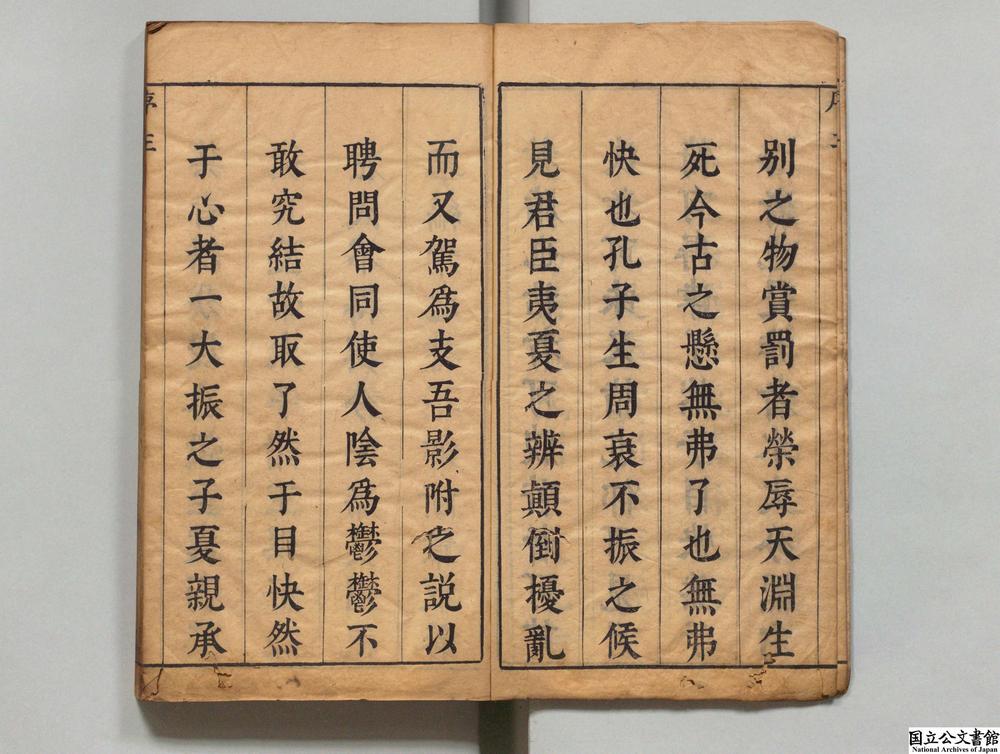 別之物賞罰者榮辱天淵生
死今古之懸無弗了也無弗
快也孔子生周衰不振之候
見君臣夷夏之辨顛倒擾亂
而又駕爲支吾影附之説以
聘問會同使人陰爲鬱鬱不
敢究結故取了然于目快然
于心者一大振之子夏親承
序三
国立公文書館
National Archives of Japan